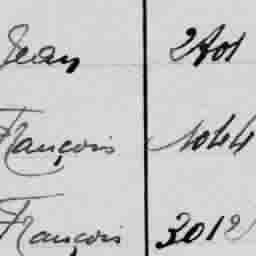 Jean 2801
François 1044
François 3012